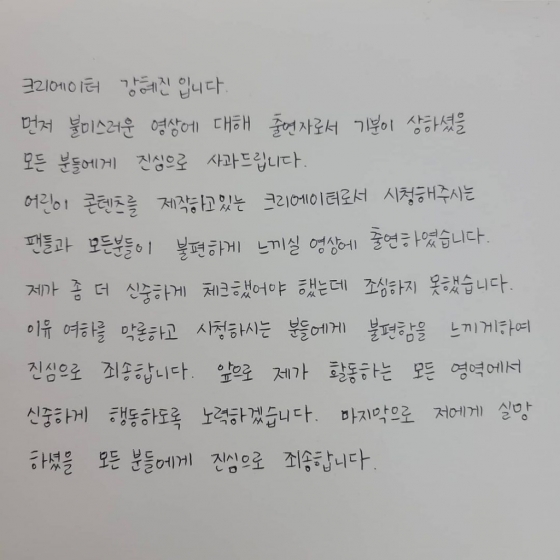 크리에이터 강혜진입니다.
먼저 불미스러운 영상에 대해 출연자로서 기분이 상하셨을
모든 분들에게 진심으로 사과드립니다.
어린이 콘텐츠를 제작하고있는 크리에이터로서 시청해주시는
팬들과 모든분들이 불편하게 느끼실 영상에 출연하였습니다.
제가 좀 더 신중하게 체크했어야 했는데 조심하지 못했습니다.
이유 여하를 막론하고 시청하시는 분들에게 불편함을 느끼게하여
진심으로 죄송합니다. 앞으로 제가 활동하는 모든 영역에서
신중하게 행동하도록 노력하겠습니다. 마지막으로 저에게 실망
하셨을 모든 분들에게 진심으로 죄송합니다.